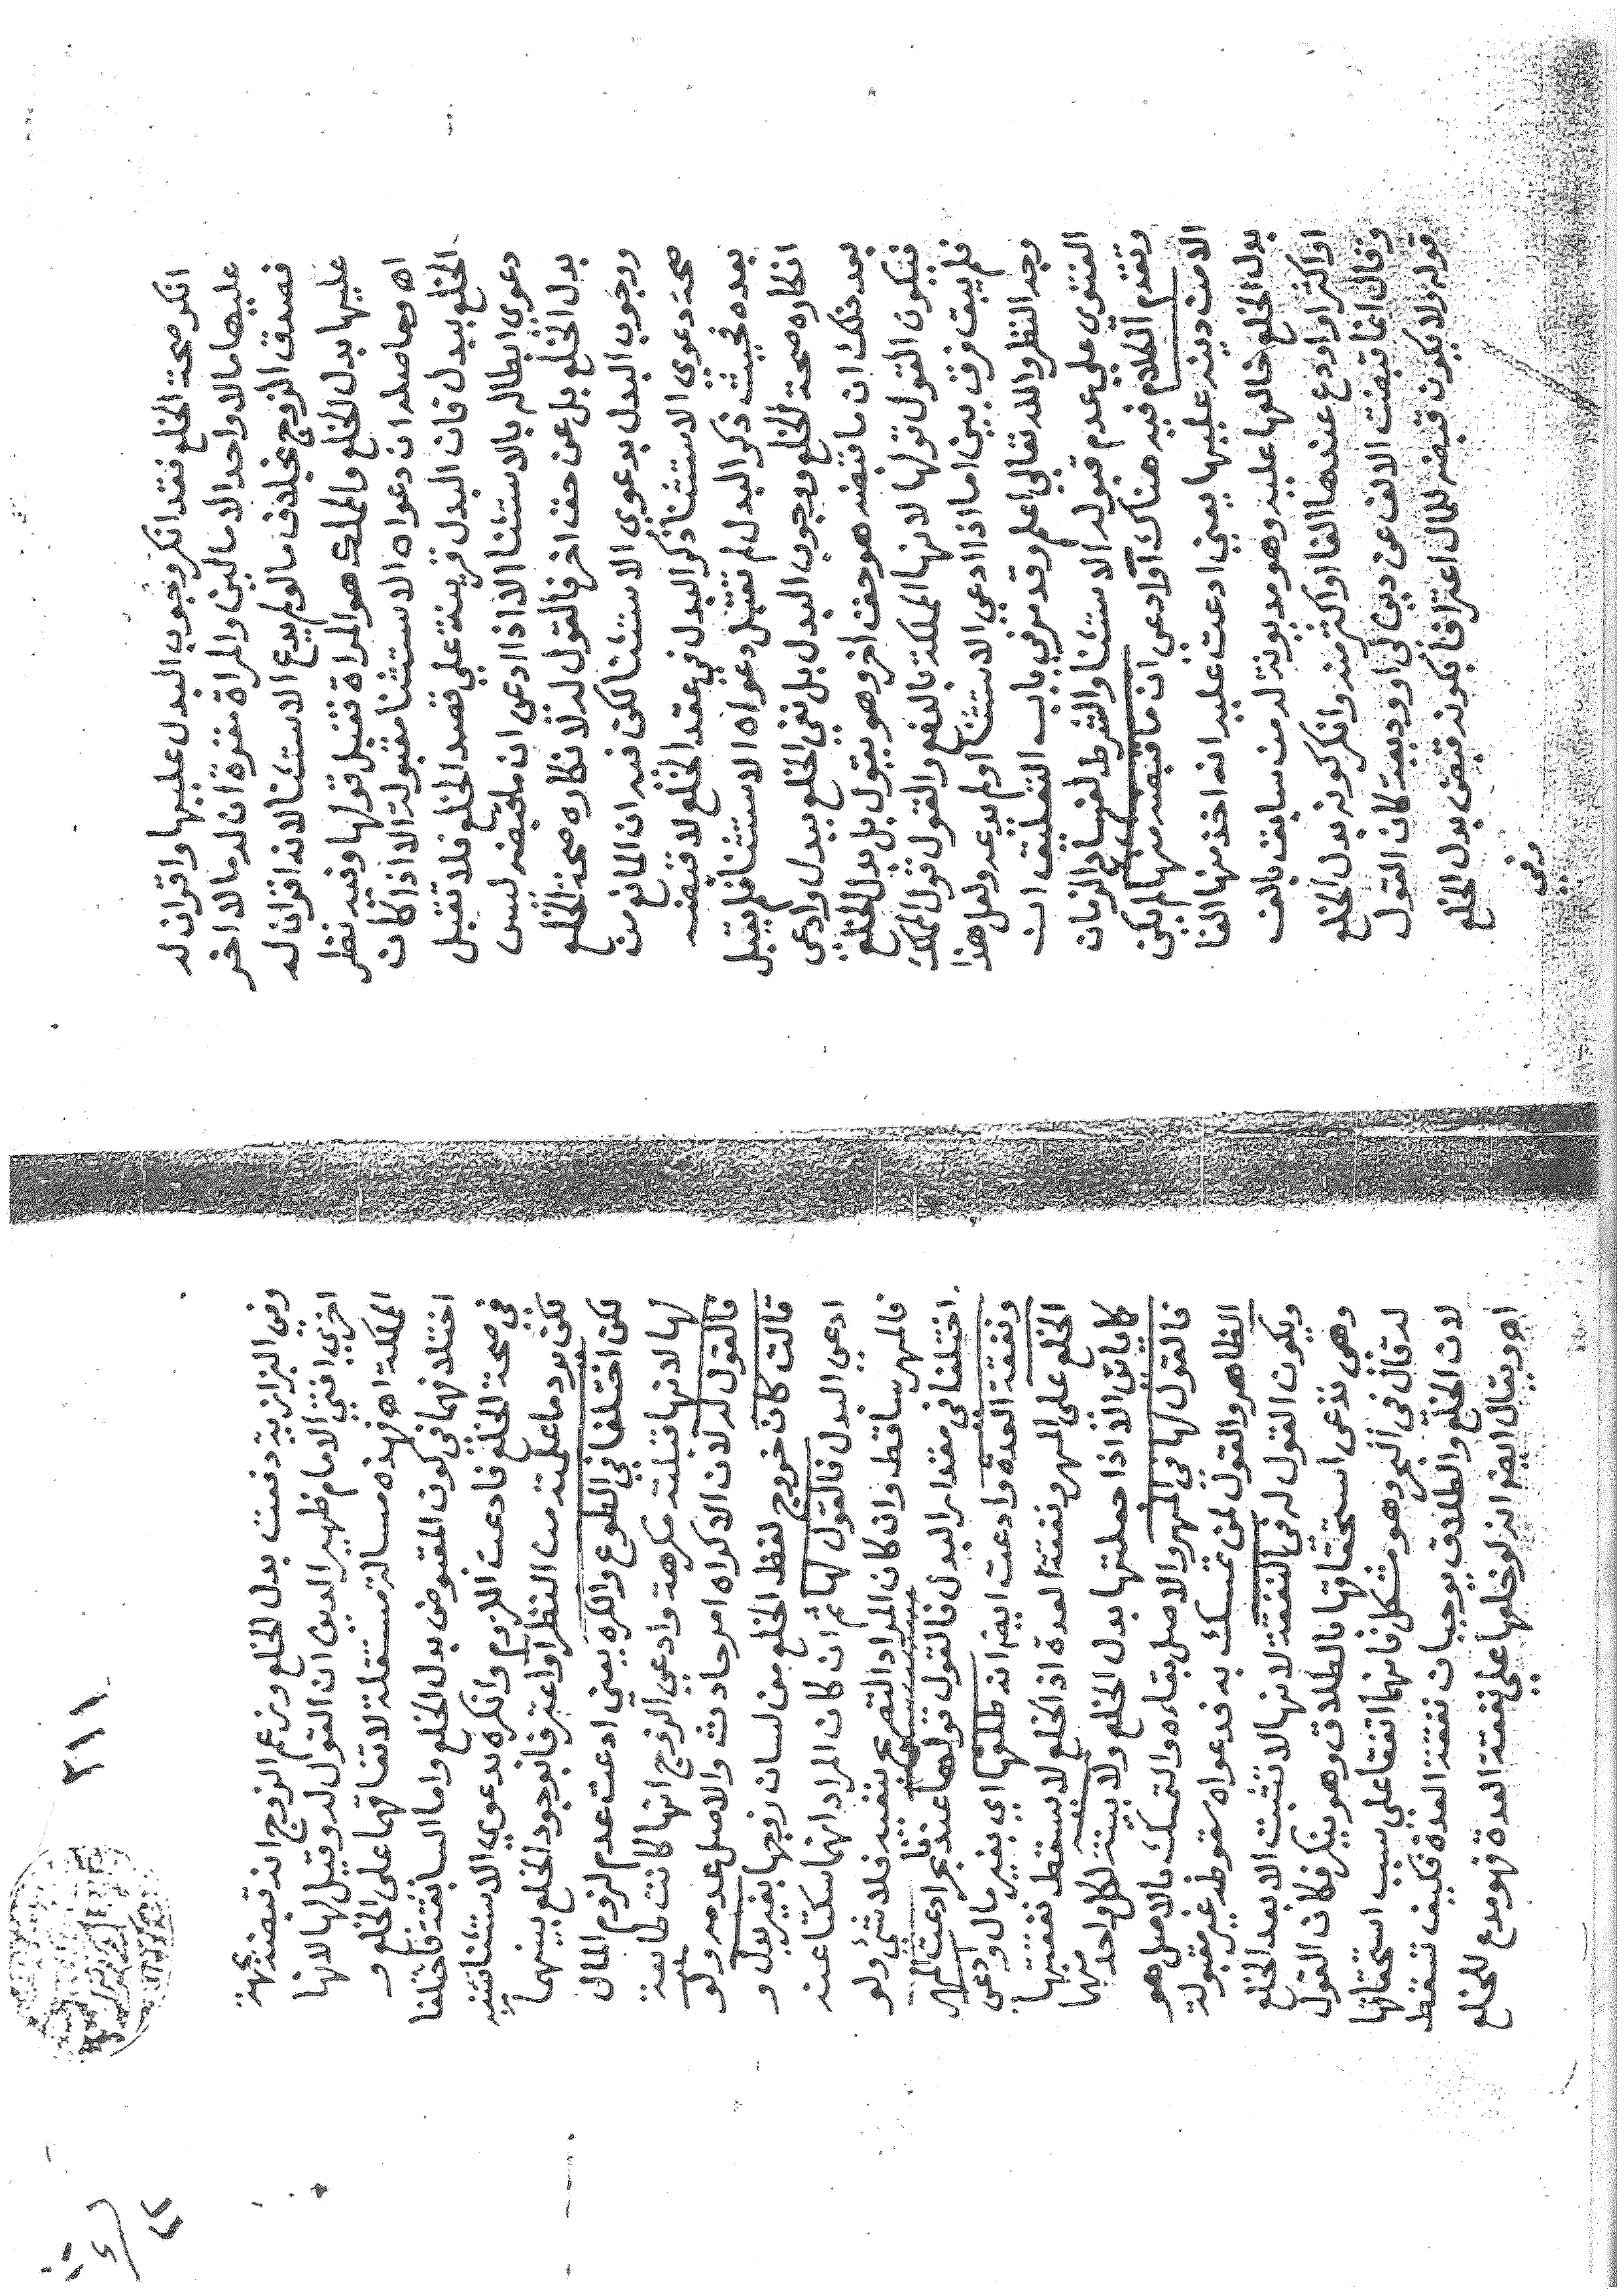 انكر صحة الخلع فقد انكر وجوب البدل عليها واقران له
عليها مالا واحد الا مالين والمراة مقرة ان له مالا اخر
فصدق الزوج بخلاف مالو لم يدع الاستثنا لانه اقران له
عليها بدل الخلع والمملك هو المراة فتقبل قولها وفيه نظر
اه وحاصله ان دعواه الاستثنا مقبولة الا اذا كان
الخلع ببدل فان البدل قرينة على قصد الخلع فلا تقبل
دعوى ابطاله بالاستثنا الا اذا ادعى ان ما قبضه ليس
بدل الخلع بل عن حق اخر فالقول له لانكاره صحة الخلع
ووجوب البدل بدعوى الاستثنا لكن فيه ان المانع من
صحة دعوى الاستثنا ذكر البدل في عقد الخلع لا قبضه
بعده فحيث ذكر البدل لم تقبل دعواه الاستثنا فلم يقبل
انكاره صحة الخلع ووجوب البدل بل نفى الخلع ببدل وادعى
بعد ذلك ان ما قبضه هو حق اخر وهو يقول بل بدل الخلع
فيكون القول قولها لانها المملكة بالدفع والقول قول المملك
فلم يبق فرق بين ما اذا ادعى الاستثنا او لم يدعه ولعل هذا
وجه النظر والله تعالى اعلم وقد مر في باب التعليق ان
الفتوى على عدم قبوله الاستثنا والشرط لفساد الزمان
وتقدم الكلام فيه هناك او ادعى ان ما قبضه منها لم يكن
الا من دينه عليها يعني ادعت عليه انه اخذ منها الفا
بدل الخلع خالعها عليه وهو مديونة له من سابق بالف
او اكثر او اودع عندها الفا او اكثر منه وانكر كونه بدل الخلع
وقال انما قبضت الالف عن دين لي او وديعة كان القول
قوله ولا يكون قبضه للمال اعترافا بكونه قبض بدل الخلع
وفى
٢١١
وفي البزازية دفعت بدل الخلع وزعم الزوج انه قبضه بجهة
اخرى افتى الامام ظهير الدين ان القول له وقيل لها لانها
المملكة اه فهذه مسالة مستقلة لاتفاقهما على الخلع و
اختلافهما في كون المقبوض بدل الخلع واما السابقة فاختلفا
في صحة الخلع فادعت اللزوم وانكره بدعوى الاستثنا
لكن يرد ما علمته من النظر او اعترفا بوجود الخلع بينهما
لكن اختلفا في الطوع والكره يعني ادعت عدم لزوم المال
لها لانها قبلته مكرهة وادعى الزوج انها كانت طايعة
فالقول له لان الاكراه امر حادث والاصل عدمه ولو
قالت كان خروج لفظ الخلع من لسان زوجها بغير بدل و
ادعى البدل فالقول لها ثم ان كان المراد انهما سكتا عنه
فالمهر ساقط وان كان المراد التصريح بنفيه فلا شئ ولو
اختلفا في مقدار البدل فالقول قولها عندنا بحر ادعت المهر
ونفقة العدة وادعت ايضا انه طلقها اي بغير مال وادعى
الخلع على المهر ونفقة العدة اذ الخلع لا يسقط نفقتها
كما ياتي الا اذا جعلتها بدل الخلع ولا بينة لكل واحد منهما
فالقول لها في المهر والاصل بقاءه والتمسك بالاصل هو
الظاهر والقول لمن تمسك به فدعواه سقوطه غير مقبولة
ويكون القول له في النفقة لانها لا تثبت الا بعد الخلع
وهي تدعى استحقاقها بالطلاق وهو ينكر فكان القول
له قال في البحر وهو مشكل فانهما اتفقا على سبب استحقاقها
لان الخلع والطلاق يوجبان نفقة العدة فكيف تسقط
اه ويقال ايضا انه لو خلعها على نفقة العدة فهو مدع للخلع